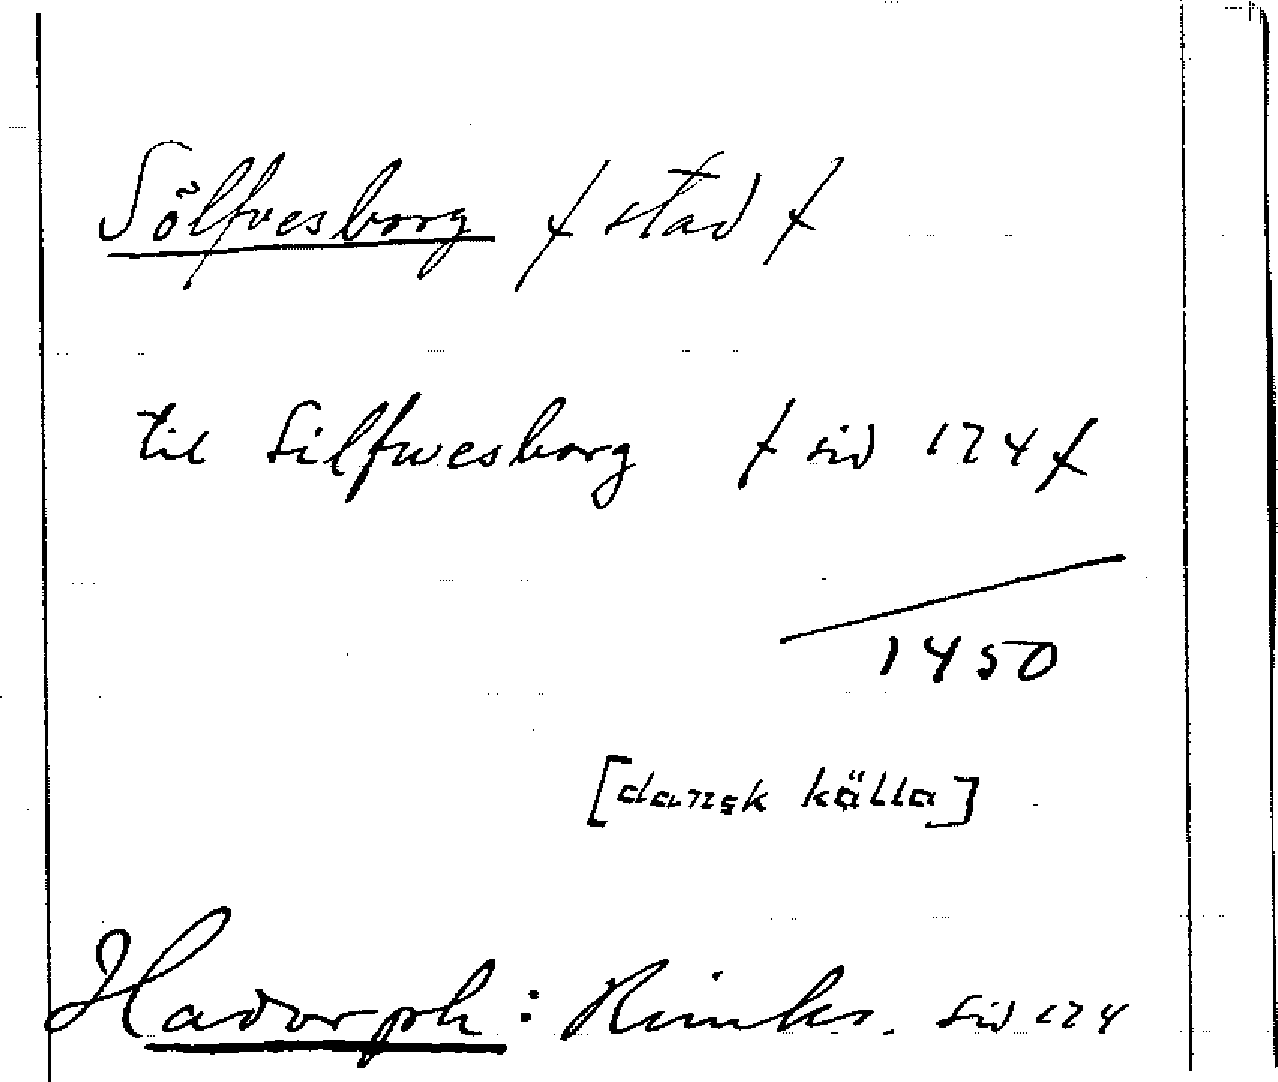 Sölfvesborg / stad /
til Silfwesborg / sid 174 /
1450
[dansk källa]
Hadorph: Rimkr. sid 174